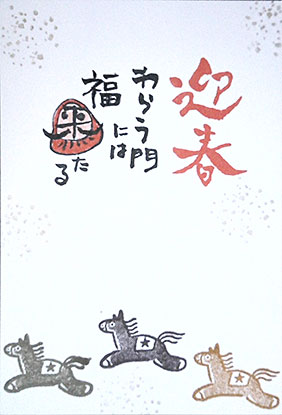 迎春
わらう門
には
福
来たる